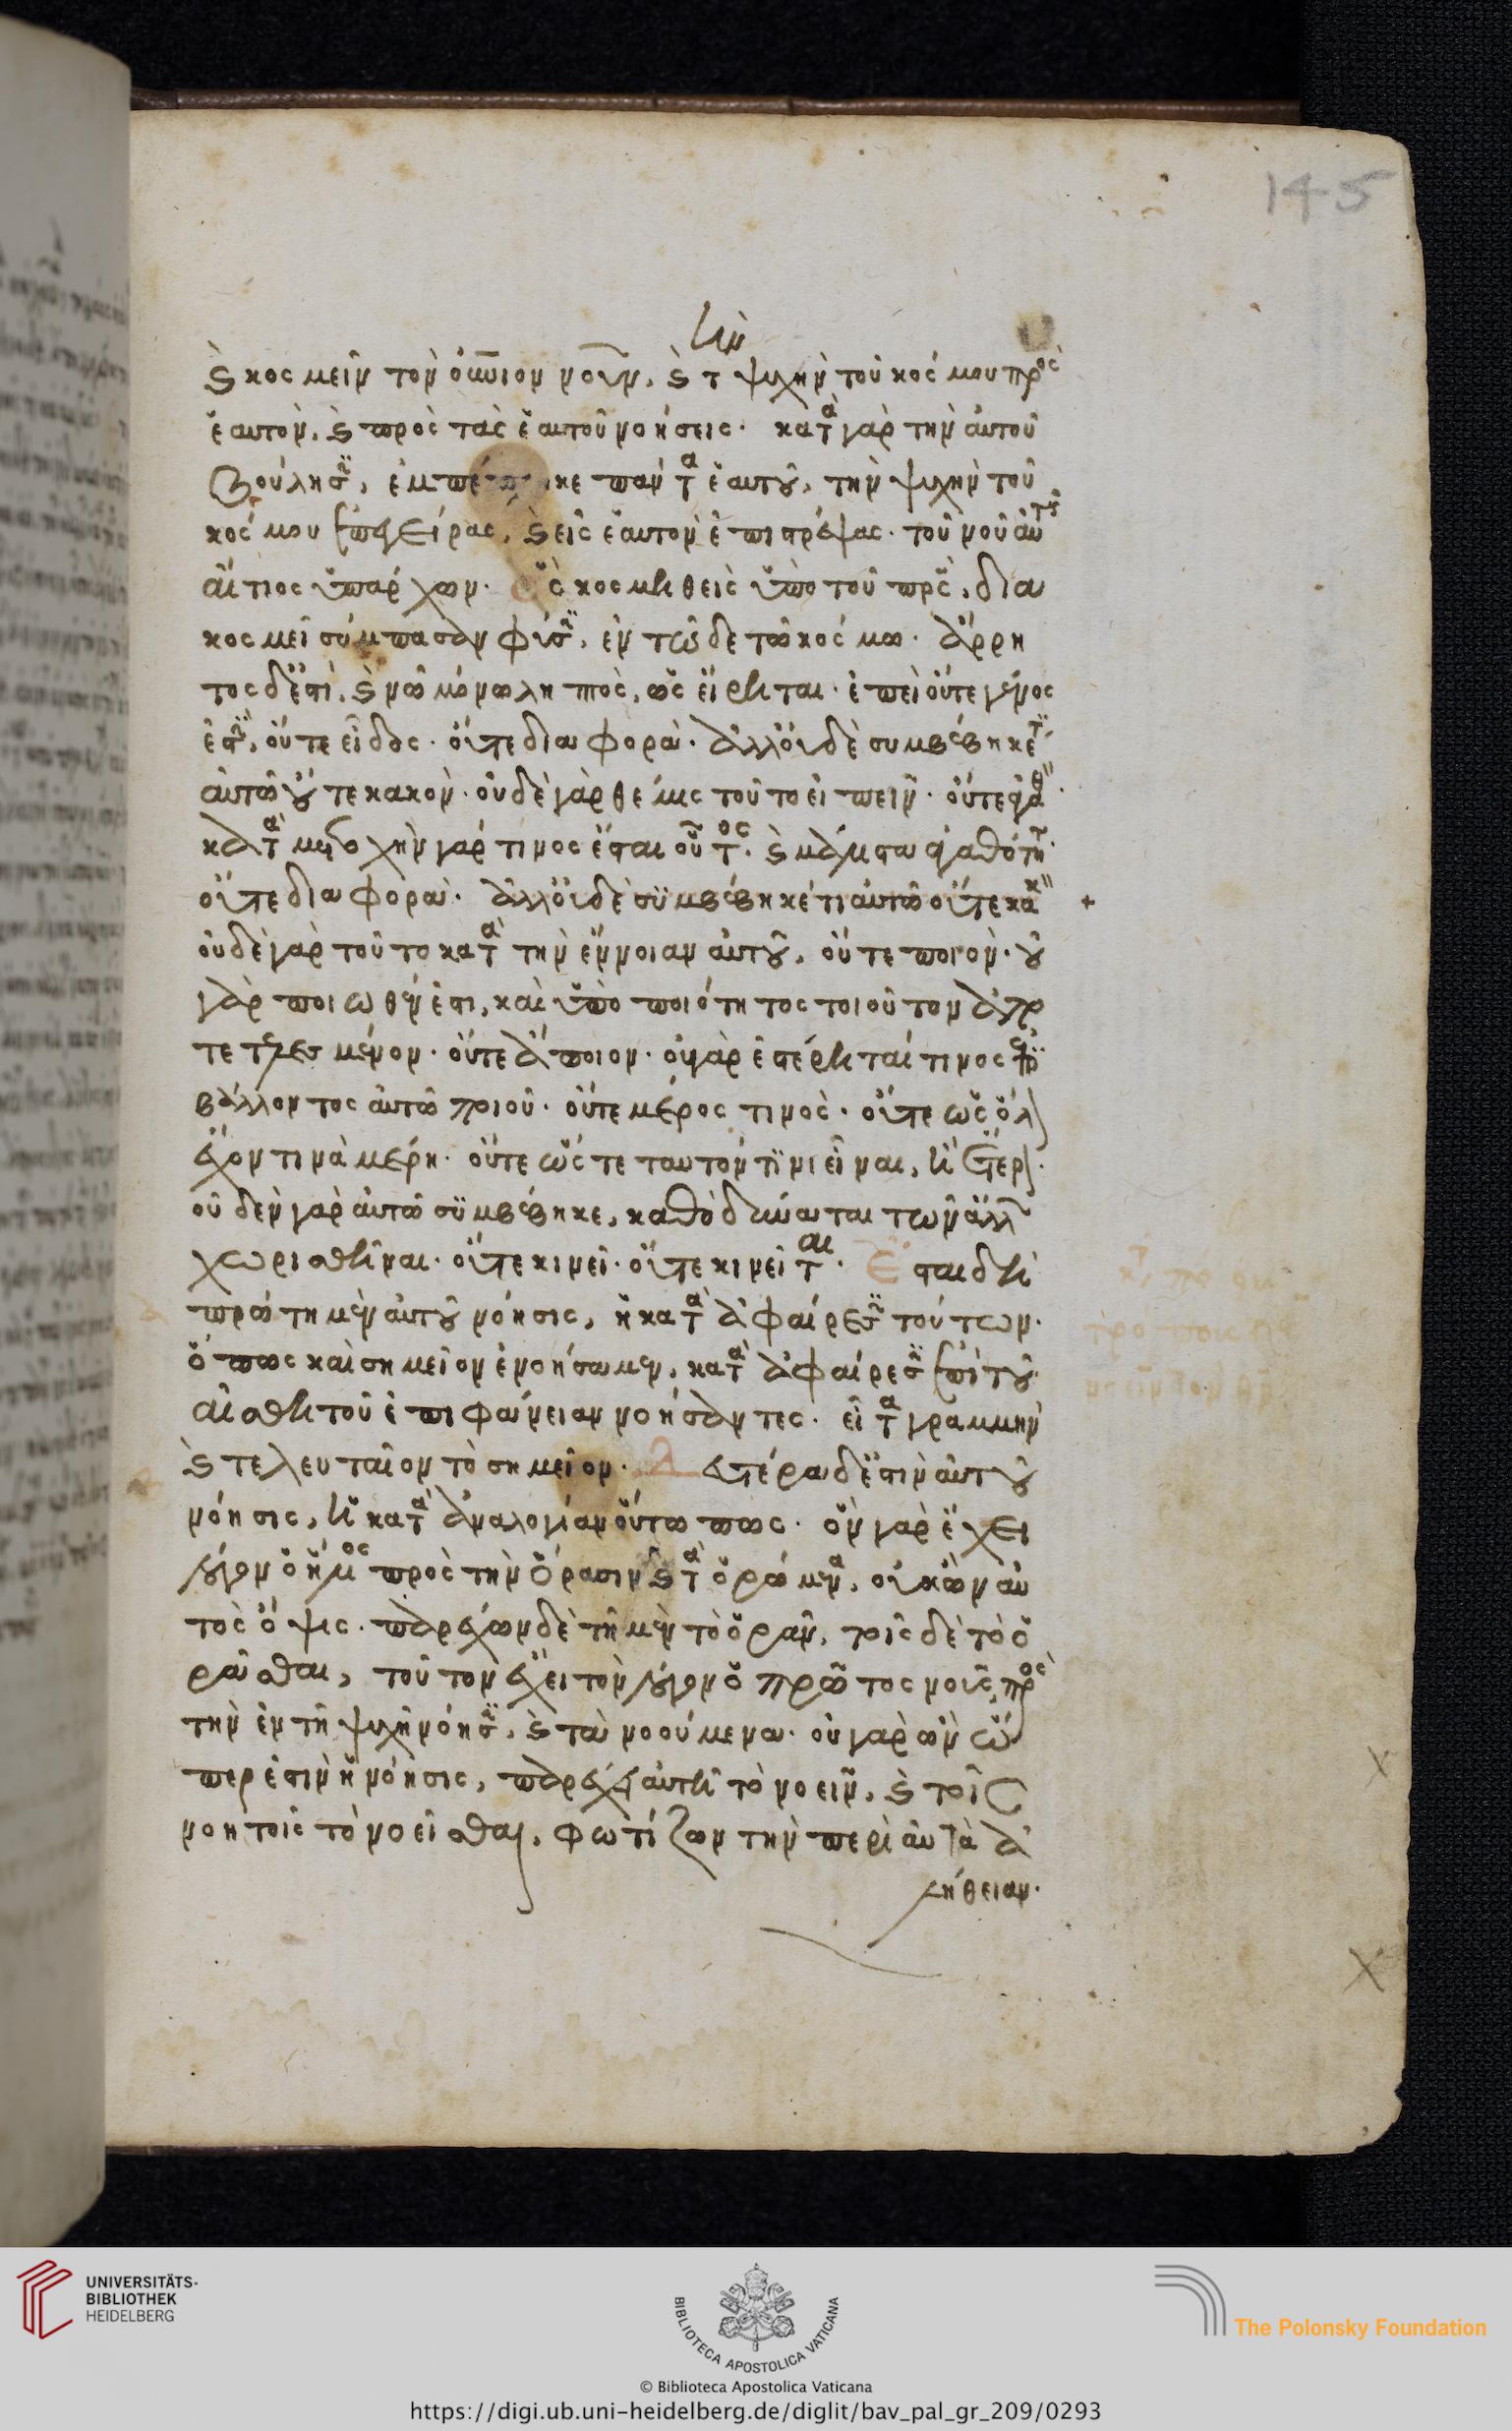 145
ην
καὶ κοσμεῖν τὸν οὐνιον νοῦν, καὶ τ ψυχὴν τοῦ κόσμου πρὸς
ἑαυτὸν, καὶ πρὸς τὰς ἑαυτοῦ νοήσεις· κατὰ γὰρ τὴν αὐτοῦ
βούλησιν, ἐμπέπληκε πάντα ἑαυτοῦ, τὴν ψυχὴν τοῦ
κόσμου ἐπεγείρας, καὶ εἰς ἑαυτὸν ἐπιστρέψας· τοῦ νοῦ αὐτῆς
αἴτιος ὑπάρχων· ὃς κοσμηθεὶς ὑπὸ τοῦ πρς, δια
κοσμεῖ σύμπασαν φύσιν, ἐν τῶδε τῶ κόσμω· ἄρρη
τος δέ ἐστι, καὶ νῶ μόνω ληπτὸς, ὡς εἴρηται· ἐπεὶ οὔτε γένος
ἐστὶν, οὔτε εἶδος· οὔτε διαφορὰ· ἀλλ' οὐδὲ συμβέβηκέ τι
αὐτῶ οὔτε κακὸν· οὐδὲ γὰρ θέμις τοῦτο εἰπεῖν· οὔτε ἀγαθ
κατὰ μετοχὴν γάρ τινος ἔσται οὗτος· καὶ μάλιστα ἀγαθότητ
οὔτε διαφορὰ· ἀλλ' οὐδὲ συμβέβηκέ τι αὐτῶ οὔτε κακ +
οὐδὲ γὰρ τοῦτο κατὰ τὴν ἔννοιαν αὐτοῦ, οὔτε ποιὸν· οὐ
γὰρ ποιωθέν ἐστι, καὶ ὑπὸ ποιότητος τοιοῦτον ἀπο
τετελεσμένον· οὔτε ἄποιον· οὐ γὰρ ἐστέρηταί τινος ἐπι
βάλλοντος αὐτῶ ποιοῦ· οὔτε μέρος τινὸς· οὔτε ὡς ὅλον
ἔχον τινὰ μέρη· οὔτε ὥστε ταυτόν τινι εἶναι, ἢ ἕτερον·
οὐδὲν γὰρ αὐτῶ συμβέβηκε, καθὸ δύναται τῶν ἄλλων
χωρισθῆναι· οὔτε κινεῖ· οὔτε κινεῖται· Ἔσται δὴ
πρώτη μὲν αὐτοῦ νόησις, ἡ κατὰ ἀφαίρεσιν τούτων·
ὅπως καὶ σημεῖον ἐνοήσαμεν, κατὰ ἀφαίρεσιν ἀπὸ τοῦ
αἰσθητοῦ ἐπιφάνειαν νοήσαντες· εἶτα γραμμὴν
καὶ τελευταῖον τὸ σημεῖον· Δευτέρα δέ ἐστιν αὐτοῦ
νόησις, ἡ κατὰ ἀναλογίαν οὕτω πως· ὃν γὰρ ἔχει
λόγον ὁ ἥλιος πρὸς τὴν ὅρασιν καὶ τὰ ὁρώμενα, οὐκ ὢν αὐ
τὸς ὄψις· παρέχων δὲ τῆ μὲν τὸ ὁρᾶν, τοῖς δὲ τὸ ὁ
ρᾶσθαι, τοῦτον ἔχει τὸν λόγον ὁ πρῶτος νοῦς πρὸς
τὴν ἐν τῆ ψυχῆ νόησιν, καὶ τὰ νοούμενα· οὐ γὰρ ὢν ὅ
περ ἐστὶν ἡ νόησις, παρέχει αὐτῆ τὸ νοεῖν, καὶ τοῖς
νοητοῖς τὸ νοεῖσθαι, φωτίζων τὴν περὶ αὐτὰ ἀ
λήθειαν·
UNIVERSITÄTS-
BIBLIOTHEK
HEIDELBERG
BIBLIOTECA APOSTOLICA VATICANA
The Polonsky Foundation
© Biblioteca Apostolica Vaticana
https://digi.ub.uni-heidelberg.de/diglit/bav_pal_gr_209/0293